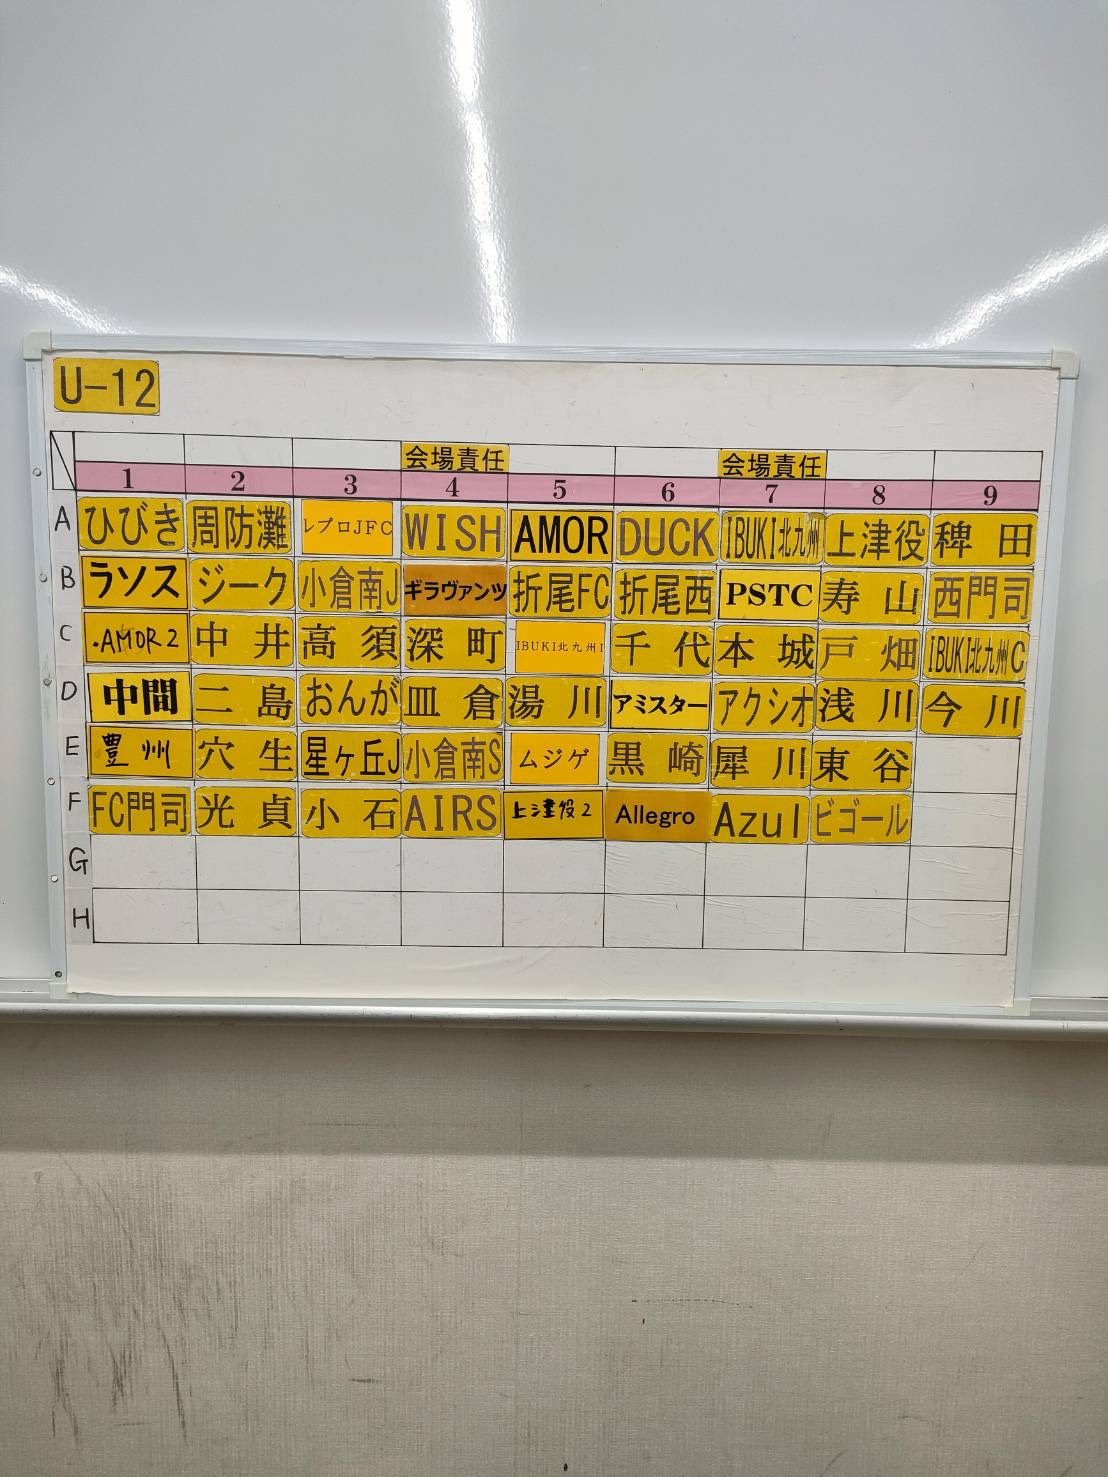 U-12
会場責任 会場責任
1 2 3 4 5 6 7 8 9
A ひびき 周防灘 レプロJFC WISH AMOR DUCK IBUKI北九州 上津役 稗田
B ラソス ジーク 小倉南J ギラヴァンツ 折尾FC 折尾西 PSTC 寿山 西門司
C .AMOR2 中井 高須 深町 IBUKI北九州I 千代 本城 戸畑 IBUKI北九州C
D 中間 二島 おんが 皿倉 湯川 アミスター アクシオ 浅川 今川
E 豊州 穴生 星ヶ丘J 小倉南S ムジゲ 黒崎 犀川 東谷
F FC門司 光貞 小石 AIRS 上津役2 Allegro Azul ビゴール
G
H